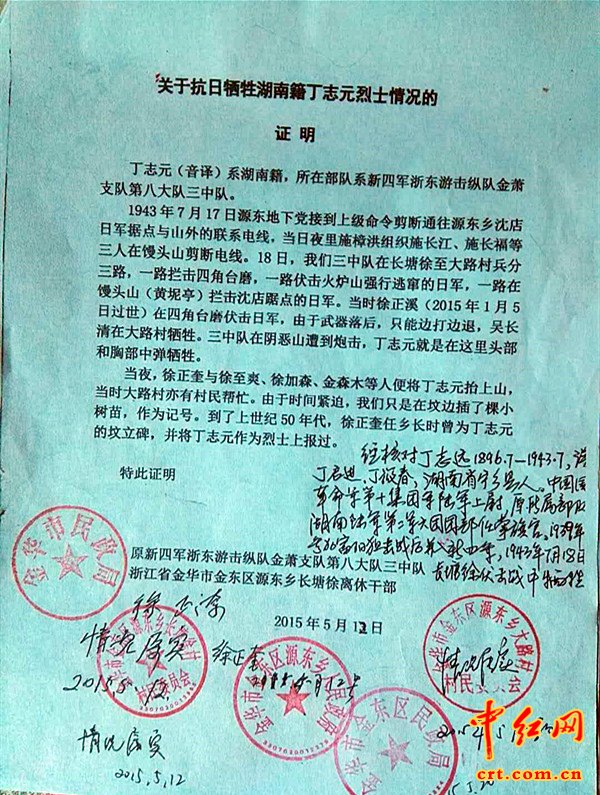 关于抗日牺牲湖南籍丁志元烈士情况的
证明
丁志元（音译）系湖南籍，所在部队系新四军浙东游击纵队金萧
支队第八大队三中队。
1943年7月17日源东地下党接到上级命令剪断通往源东乡沈店
日军据点与山外的联系电线，当日夜里施樟洪组织施长江、施长福等
三人在馒头山剪断电线。18日，我们三中队在长塘徐至大路村兵分
三路，一路拦击四角台磨，一路伏击火炉山强行逃窜的日军，一路在
馒头山（黄坭亭）拦击沈店踞点的日军。当时徐正溪（2015年1月5
日过世）在四角台磨伏击日军，由于武器落后，只能边打边退，吴长
清在大路村牺牲。三中队在阴恶山遭到炮击，丁志元就是在这里头部
和胸部中弹牺牲。
当夜，徐正奎与徐至爽、徐加森、金森木等人便将丁志元抬上山，
当时大路村亦有村民帮忙。由于时间紧迫，我们只是在坟边插了棵小
树苗，作为记号。到了上世纪50年代，徐正奎任乡长时曾为丁志元
的坟立碑，并将丁志元作为烈士上报过。
经核对丁志远1896.7—1943.7，谱
丁启迪、丁按春，湖南省宁乡县人。中国国
革命军第十集团军陆军上尉，原所属部队
湖南陆军第二军
1943年7月18日
长塘徐伏击战中牺牲
特此证明
原新四军浙东游击纵队金萧支队第八大队三中队
浙江省金华市金东区源东乡长塘徐离休干部
徐正奎
2015年5月12日
金华市民政局
情况属实
2015.5.12
情况属实
2015.5.12
金华市金东区源东乡
金华市金东区民政局
金华市金东区源东乡大路村
村民委员会
情况属实
中红网
crt.com.cn